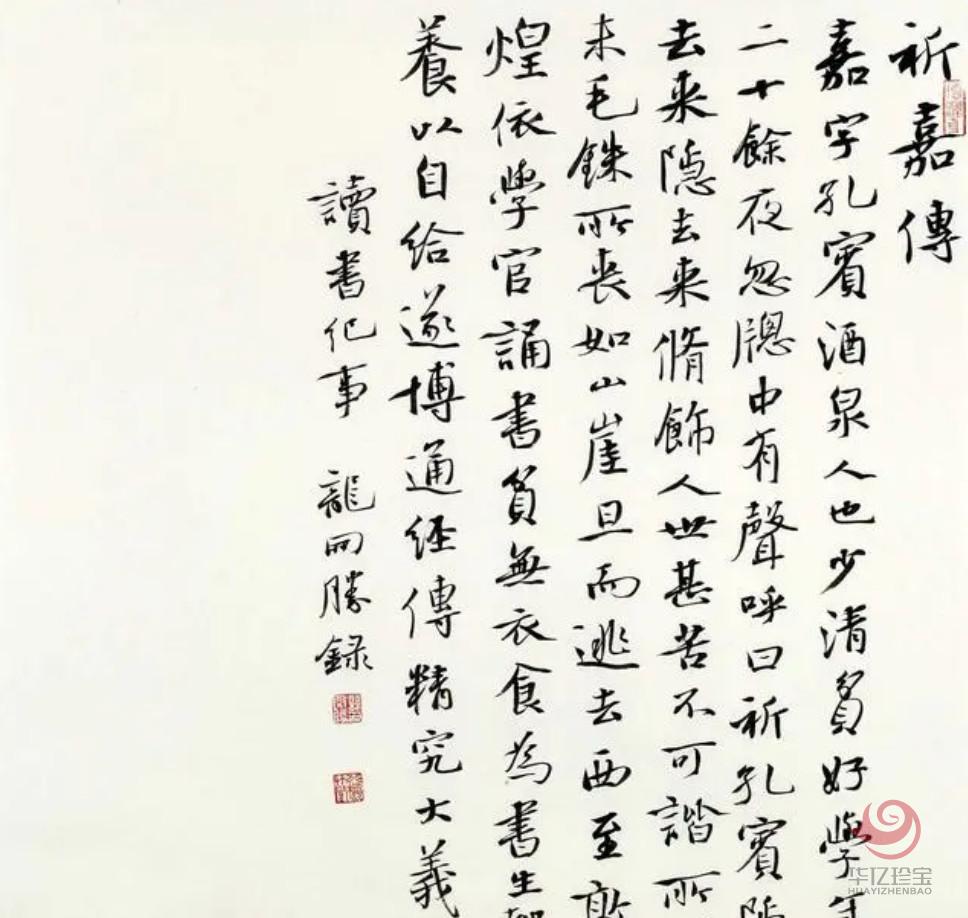 祈嘉傳
嘉字孔賓酒泉人也少清貧好學年
二十餘夜忽牕中有聲呼曰祈孔賓隱
去来隱去来脩飾人世甚苦不可諧所
未毛銖所喪如山崖旦而逃去西至敦
煌依學官誦書貧無衣食為書生都
養以自給遂博通經傳精究大義
讀書紀事 龍開勝録
华亿珍宝
HUAYIZHENBAO